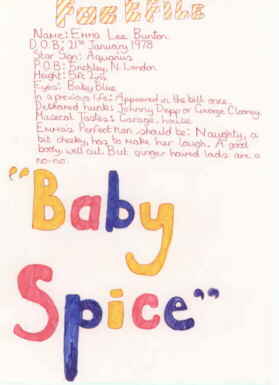 FactFILE
Name: Emma Lee Bunton
D.O.B: 21st January 1978
Star Sign: Aquarius
P.O.B: Finchley, N. London
Height: 5ft 2ins
Eyes: Baby Blue
In a previous life: Appeared in the bill once
Desired hunk: Johnny Depp or George Clooney
Musical Tastes: Garage, house
Emmas Perfect man should be: Naughty, a
bit cheeky, has to make her laugh. A good
body, well cut. But ginger haired lads are a
no-no.
"Baby
Spice"